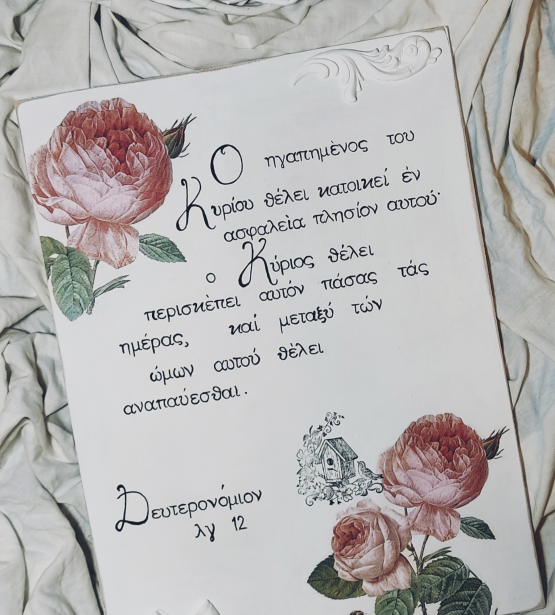 Ο ηγαπημένος του
Κυρίου θέλει κατοικεί έν
ασφαλεία πλησίον αυτού·
ο Κύριος θέλει
περισκέπει αυτόν πάσας τάς
ημέρας, καί μεταξύ τών
ώμων αυτού θέλει
αναπαύεσθαι.
Δευτερονόμιον
λγ 12